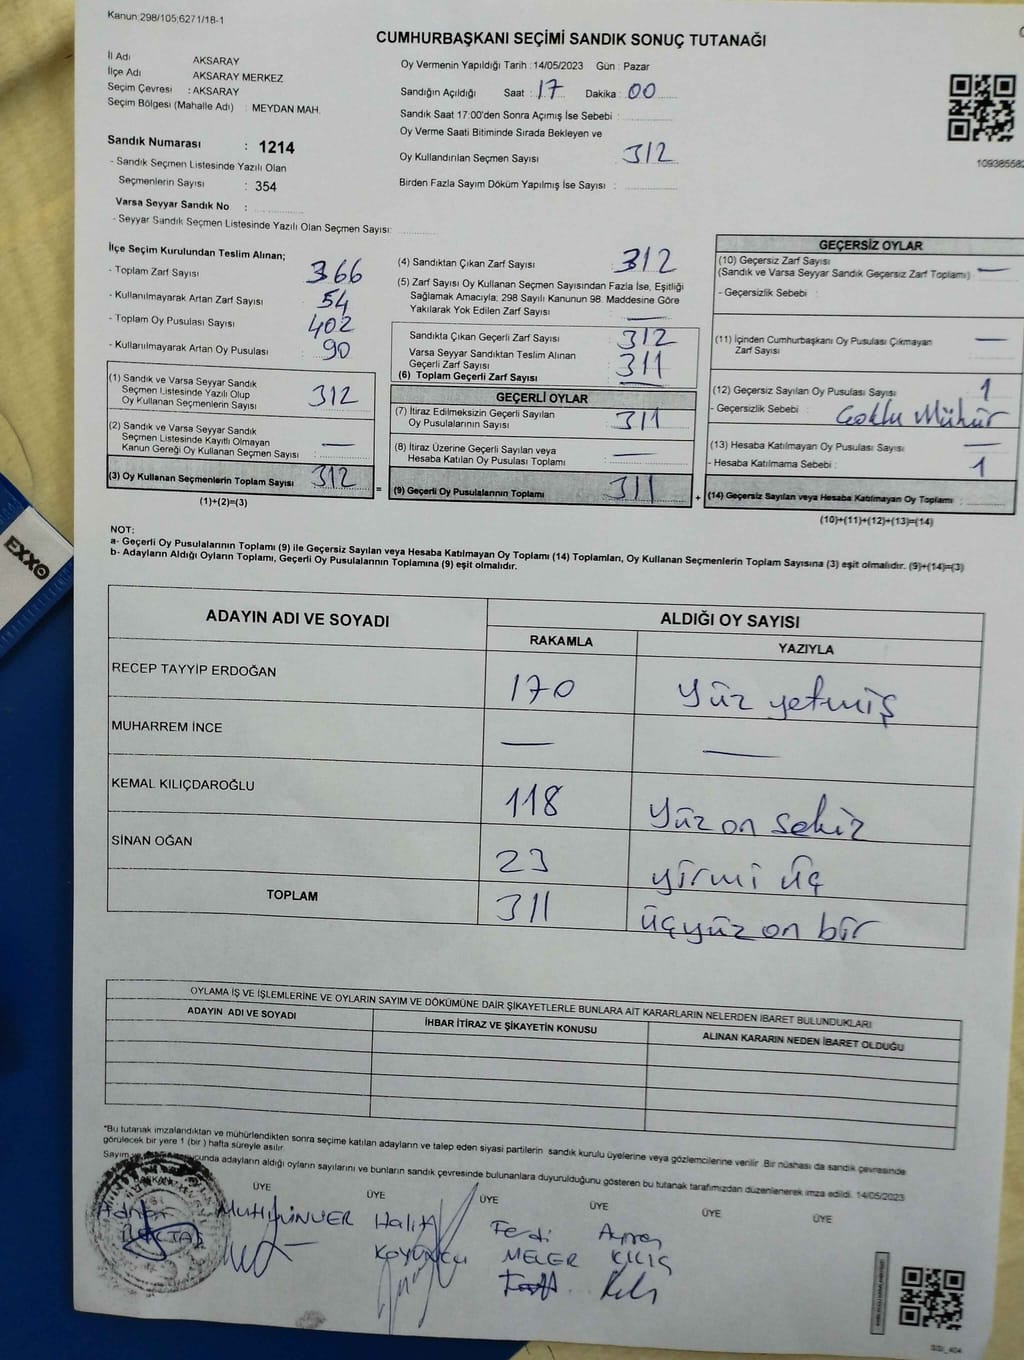 Kanun:298/105;6271/18-1
CUMHURBAŞKANI SEÇİMİ SANDIK SONUÇ TUTANAĞI
İl Adı AKSARAY
İlçe Adı AKSARAY MERKEZ
Seçim Çevresi : AKSARAY
Seçim Bölgesi (Mahalle Adı) : MEYDAN MAH.
Sandık Numarası : 1214
- Sandık Seçmen Listesinde Yazılı Olan
Seçmenlerin Sayısı : 354
Varsa Seyyar Sandık No :
- Seyyar Sandık Seçmen Listesinde Yazılı Olan Seçmen Sayısı:
Oy Vermenin Yapıldığı Tarih :14/05/2023 Gün : Pazar
Sandığın Açıldığı Saat : 17 Dakika : 00
Sandık Saat 17:00'den Sonra Açımış İse Sebebi :
Oy Verme Saati Bitiminde Sırada Bekleyen ve
Oy Kullandırılan Seçmen Sayısı 312
Birden Fazla Sayım Döküm Yapılmış İse Sayısı :
109385582
İlçe Seçim Kurulundan Teslim Alınan;
- Toplam Zarf Sayısı 366
- Kullanılmayarak Artan Zarf Sayısı 54
- Toplam Oy Pusulası Sayısı 402
- Kullanılmayarak Artan Oy Pusulası 90
(1) Sandık ve Varsa Seyyar Sandık
Seçmen Listesinde Yazılı Olup
Oy Kullanan Seçmenlerin Sayısı 312
(2) Sandık ve Varsa Seyyar Sandık
Seçmen Listesinde Kayıtlı Olmayan
Kanun Gereği Oy Kullanan Seçmen Sayısı : —
(3) Oy Kullanan Seçmenlerin Toplam Sayısı 312
(1)+(2)=(3)
(4) Sandıktan Çıkan Zarf Sayısı 312
(5) Zarf Sayısı Oy Kullanan Seçmen Sayısından Fazla İse, Eşitliği
Sağlamak Amacıyla; 298 Sayılı Kanunun 98. Maddesine Göre
Yakılarak Yok Edilen Zarf Sayısı —
Sandıkta Çıkan Geçerli Zarf Sayısı 312
Varsa Seyyar Sandıktan Teslim Alınan
Geçerli Zarf Sayısı 311
(6) Toplam Geçerli Zarf Sayısı —
GEÇERLİ OYLAR
(7) İtiraz Edilmeksizin Geçerli Sayılan
Oy Pusulalarının Sayısı 311
(8) İtiraz Üzerine Geçerli Sayılan veya
Hesaba Katılan Oy Pusulası Toplamı —
= (9) Geçerli Oy Pusulalarının Toplamı 311
GEÇERSİZ OYLAR
(10) Geçersiz Zarf Sayısı
(Sandık ve Varsa Seyyar Sandık Geçersiz Zarf Toplamı) —
- Geçersizlik Sebebi :
(11) İçinden Cumhurbaşkanı Oy Pusulası Çıkmayan
Zarf Sayısı —
(12) Geçersiz Sayılan Oy Pusulası Sayısı 1
- Geçersizlik Sebebi : Çoklu Mühür
(13) Hesaba Katılmayan Oy Pusulası Sayısı —
- Hesaba Katılmama Sebebi : 1
+ (14) Geçersiz Sayılan veya Hesaba Katılmayan Oy Toplamı
(10)+(11)+(12)+(13)=(14)
NOT:
a- Geçerli Oy Pusulalarının Toplamı (9) ile Geçersiz Sayılan veya Hesaba Katılmayan Oy Toplamı (14) Toplamları, Oy Kullanan Seçmenlerin Toplam Sayısına (3) eşit olmalıdır. (9)+(14)=(3)
b- Adayların Aldığı Oyların Toplamı, Geçerli Oy Pusulalarının Toplamına (9) eşit olmalıdır.
ADAYIN ADI VE SOYADI ALDIĞI OY SAYISI
RAKAMLA YAZIYLA
RECEP TAYYİP ERDOĞAN 170 Yüz yetmiş
MUHARREM İNCE — —
KEMAL KILIÇDAROĞLU 118 Yüz on sekiz
SİNAN OĞAN 23 yirmi üç
TOPLAM 311 üçyüz on bir
OYLAMA İŞ VE İŞLEMLERİNE VE OYLARIN SAYIM VE DÖKÜMÜNE DAİR ŞİKAYETLERLE BUNLARA AİT KARARLARIN NELERDEN İBARET BULUNDUKLARI
ADAYIN ADI VE SOYADI İHBAR İTİRAZ VE ŞİKAYETİN KONUSU ALINAN KARARIN NEDEN İBARET OLDUĞU
"Bu tutanak imzalandıktan ve mühürlendikten sonra seçime katılan adayların ve talep eden siyasi partilerin sandık kurulu üyelerine veya gözlemcilerine verilir. Bir nüshası da sandık çevresinde
görülecek bir yere 1 (bir ) hafta süreyle asılır.
Sayım adayların aldığı oyların sayılarını ve bunların sandık çevresinde bulunanlara duyurulduğunu gösteren bu tutanak tarafımızdan düzenlenerek imza edildi. 14/05/2023
ÜYE ÜYE ÜYE ÜYE ÜYE ÜYE
Halit Ferdi
MELER KILIÇ
EXXO